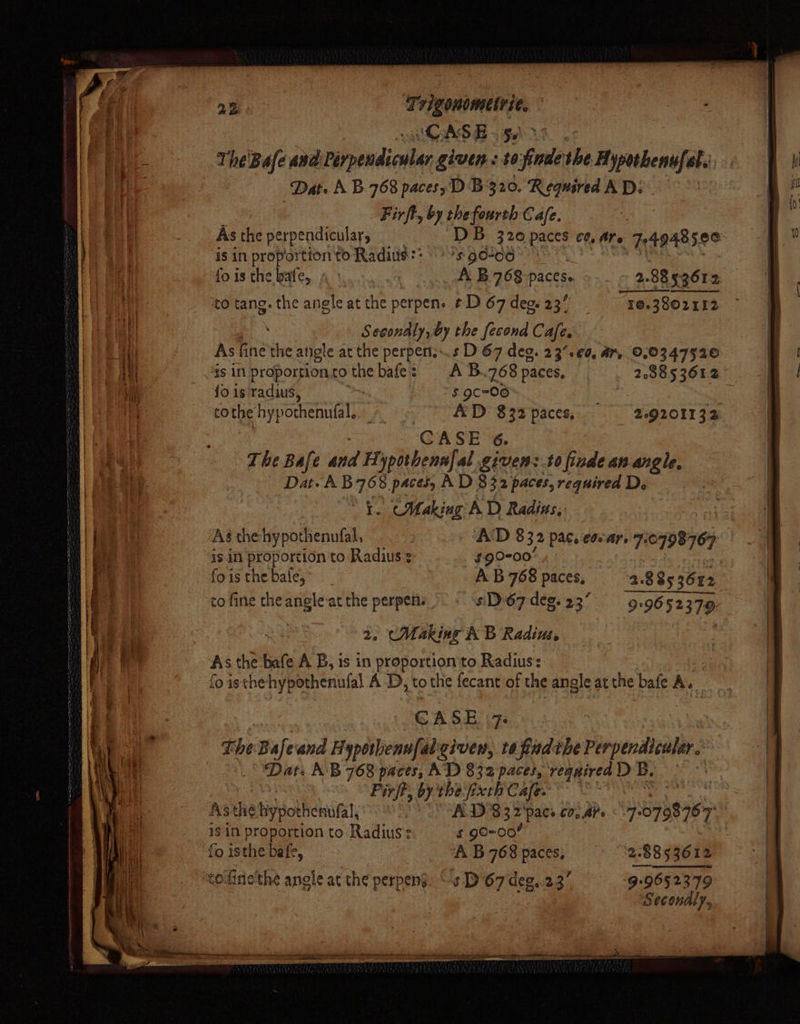 22 Trigonometrie.
CASE 5.
The Base and Perpendicular given : to finde the Hypothenusal.
Dat. A B 768 paces, D B 320. Required A D.
First, by the fourth Case.
As the perpendicular, D B 320 paces co. ar. 7.4948500
is in proportion to Radius: s 90-00
so is the base, A B 768 paces. 2.8853612
to tang. the angle at the perpen. t D 67 deg. 23′ 10.3802112
Secondly, by the second Case.
As sine the angle at the perpen. s D 67 deg. 23′. co. ar. 0.0347520
is in proportion to the base: A B. 768 paces, 2.8853612
so is radius, s 90-00
to the hypothenusal. A D 832 paces. 2.9201132
CASE 6.
The Base and Hypothenusal given: to finde an angle.
Dat. A B 768 paces, A D 832 paces, required D.
1. Making A D Radius.
As the hypothenusal, A D 832 pac. co. ar. 7.0798767
is in proportion to Radius: s 90-00′
so is the base, A B 768 paces, 2.8853612
to sine the angle at the perpen. s D 67 deg. 23′ 9.9652379
2. Making A B Radius.
As the base A B, is in proportion to Radius:
so is the hypothenusal A D, to the secant of the angle at the base A.
CASE 7.
The Base and Hypothenusal given, to find the Perpendicular.
Dat. A B 768 paces, A D 832 paces, required D B.
First, by the sixth Case.
As the hypothenusal, A D 832 pac. co. ar. 7.0798767
is in proportion to Radius: s 90-00′
so is the base, A B 768 paces, 2.8853612
to sine the angle at the perpen. s D 67 deg. 23′ 9.9652379
Secondly,